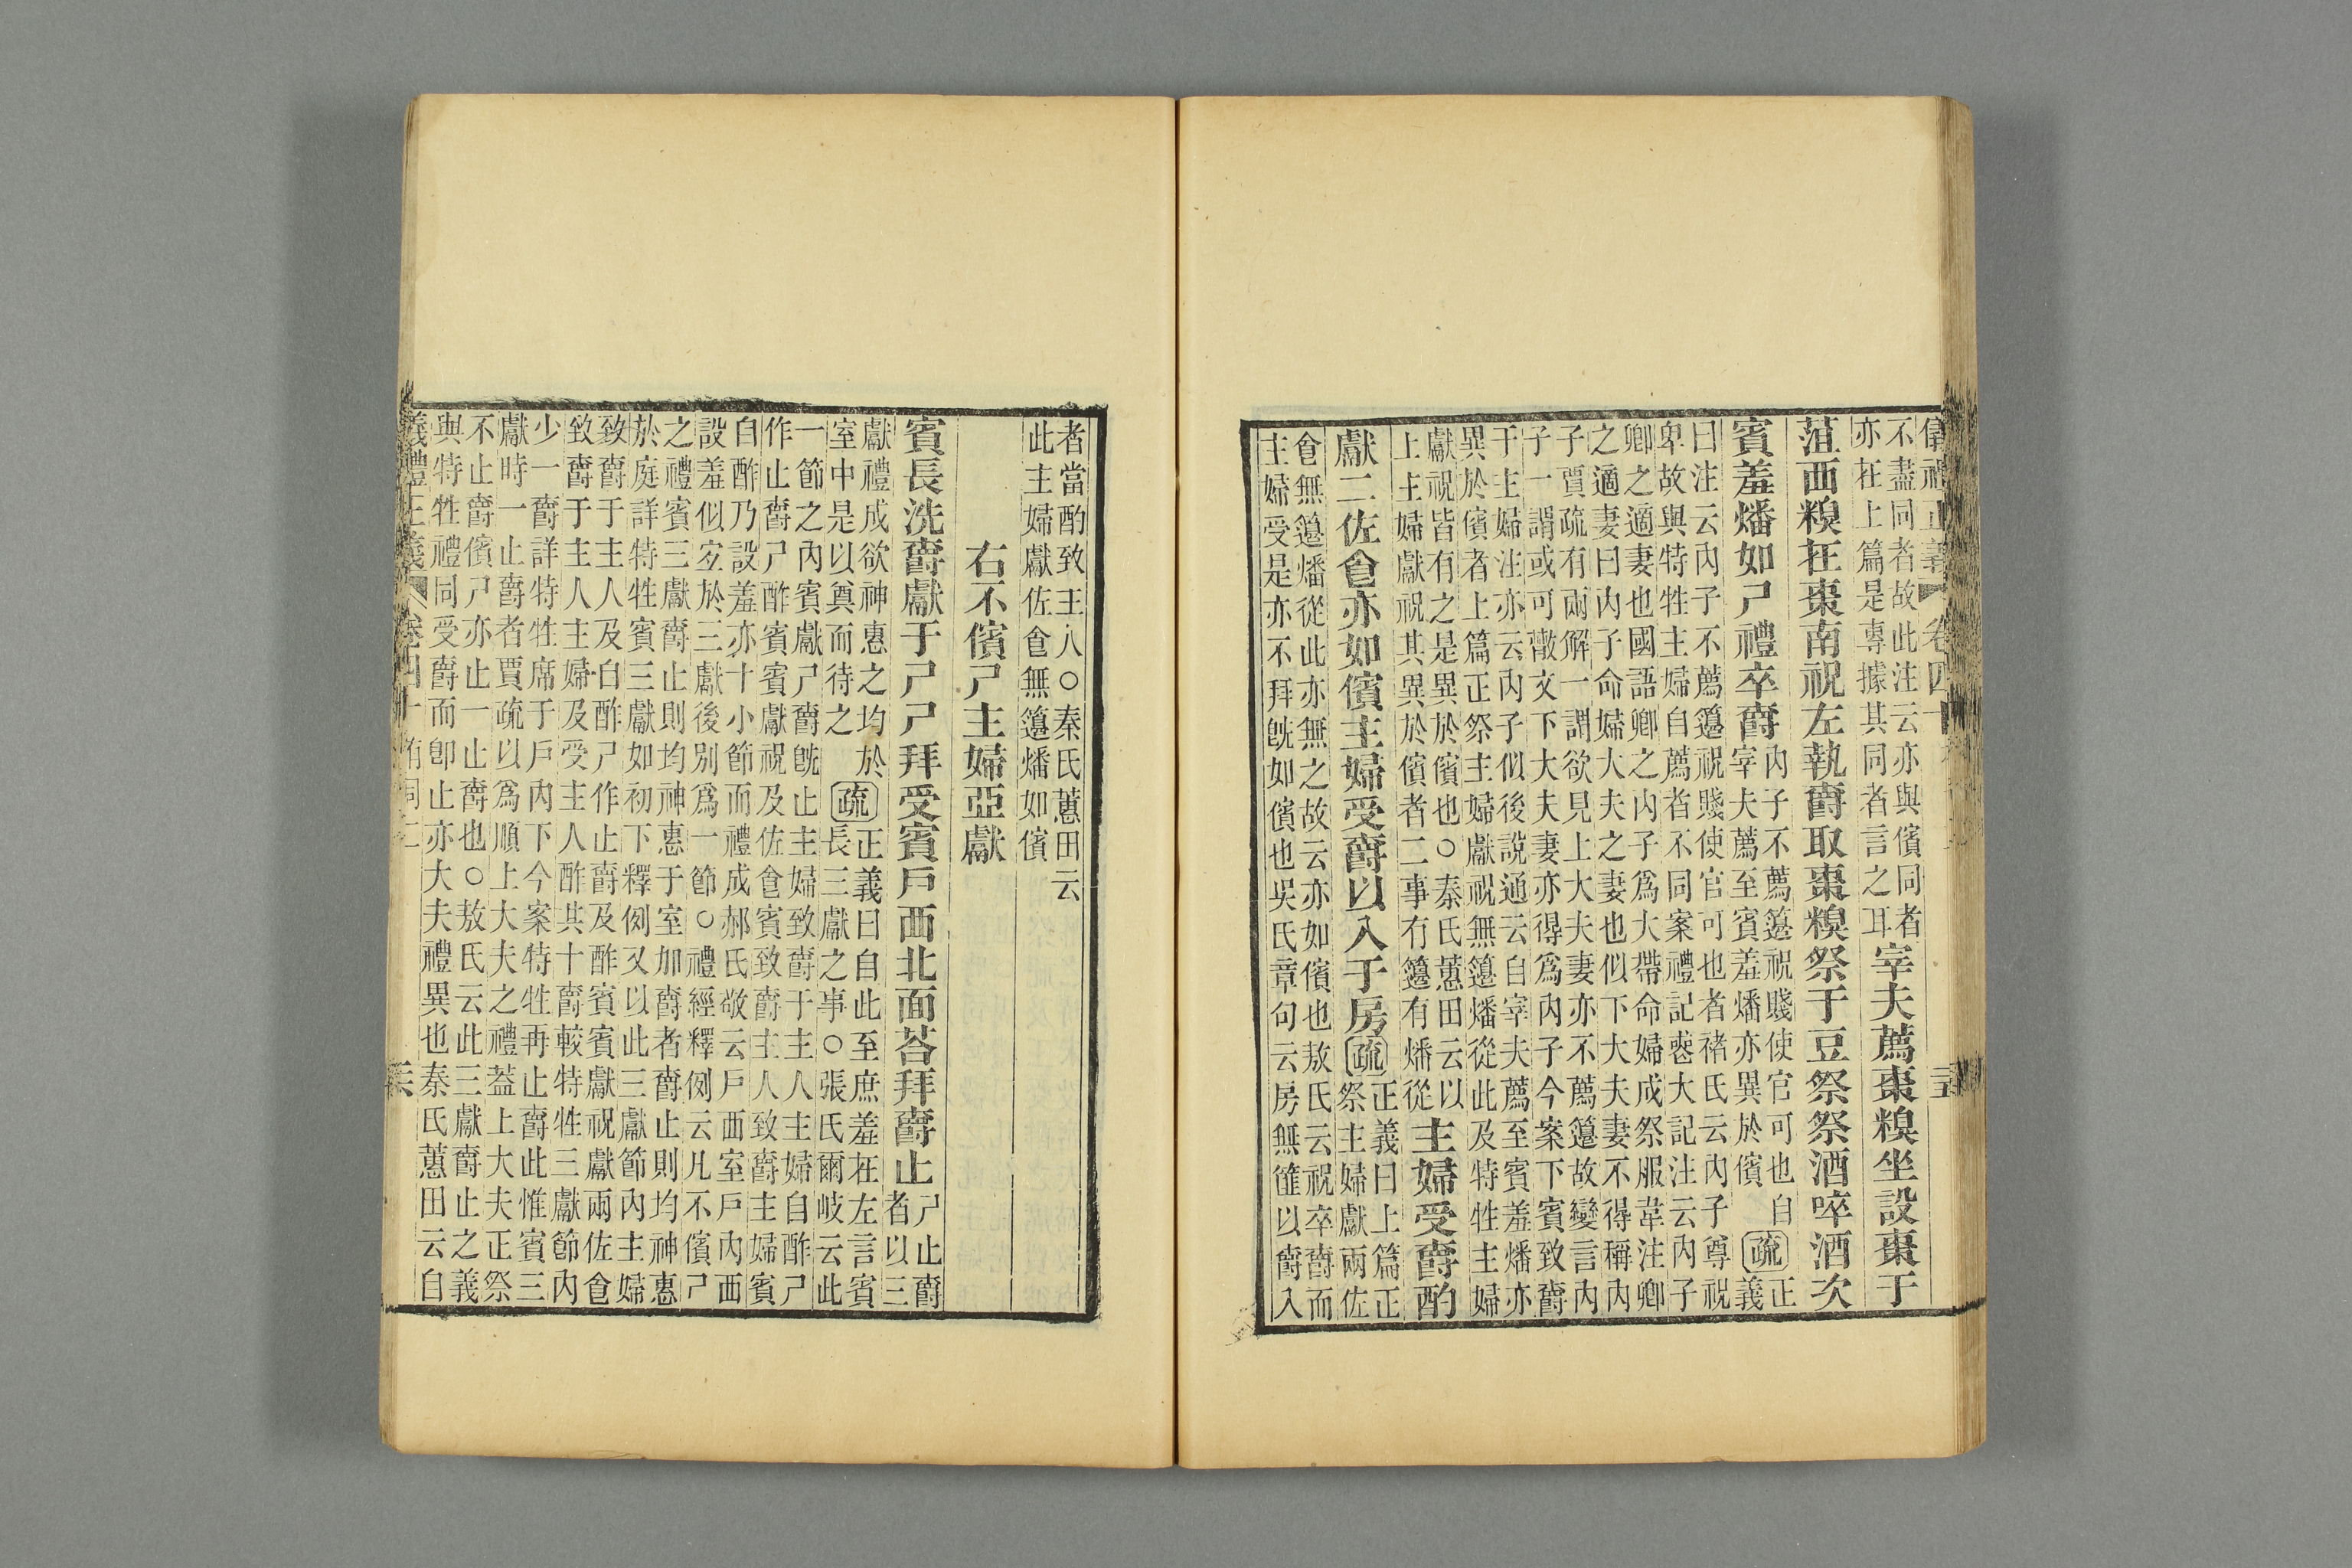 儀禮正義 卷四十
不盡同者故此注云亦與儐同者
亦在上篇是專據其同者言之耳
宰夫薦棗糗坐設棗于
菹西糗在棗南祝左執爵取棗糗祭于豆祭祭酒啐酒次
賓羞燔如尸禮卒爵
內子不薦籩祝賤使官可也自
宰夫薦至賓羞燔亦異於儐
疏
正
義
曰注云內子不薦籩祝賤使官可也者褚氏云內子尊祝
卑故與特牲主婦自薦者不同案禮記喪大記注云內子
卿之適妻也國語卿之內子爲大帶命婦成祭服韋注卿
之適妻曰內子命婦大夫之妻也似下大夫妻不得稱內
子賈疏有兩解一謂欲見上大夫妻亦不薦籩故變言內
子一謂或可散文下大夫妻亦得爲內子今案下賓致爵
于主婦注亦云內子似後說通云自宰夫薦至賓羞燔亦
異於儐者上篇正祭主婦獻祝無籩燔從此及特牲主婦
獻祝皆有之是異於儐也○秦氏蕙田云以
上主婦獻祝其異於儐者二事有籩有燔從
主婦受爵酌
獻二佐食亦如儐主婦受爵以入于房
疏
正義曰上篇正
祭主婦獻兩佐
食無籩燔從此亦無之故云亦如儐也敖氏云祝卒爵而
主婦受是亦不拜旣如儐也吳氏章句云房無篚以爵入
者當酌致主人○秦氏蕙田云
此主婦獻佐食無籩燔如儐
右不儐尸主婦亞獻
賓長洗爵獻于尸尸拜受賓戶西北面荅拜爵止
尸止爵
者以三
獻禮成欲神惠之均於
室中是以奠而待之
疏
正義曰自此至庶羞在左言賓
長三獻之事○張氏爾岐云此
一節之內賓獻尸爵旣止主婦致爵于主人主婦自酢尸
作止爵尸酢賓賓獻祝及佐食賓致爵主人致爵主婦賓
自酢乃設羞亦十小節而禮成郝氏敬云戶西室戶內西
設羞似宜於三獻後別爲一節○禮經釋例云凡不儐尸
之禮賓三獻爵止則均神惠于室加爵者爵止則均神惠
於庭詳特牲賓三獻如初下釋例又以此三獻節內主婦
致爵于主人及自酢尸作止爵及酢賓賓獻祝獻兩佐食
致爵于主人主婦及受主人酢其十爵較特牲三獻節內
少一爵詳特牲席于戶內下今案特牲再止爵此惟賓三
獻時一止爵者賈疏以爲順上大夫之禮葢上大夫正祭
不止爵儐尸亦止一止爵也○敖氏云此三獻爵止之義
與特牲禮同受爵而卽止亦大夫禮異也秦氏蕙田云自
儀禮正義 卷四十 有司二